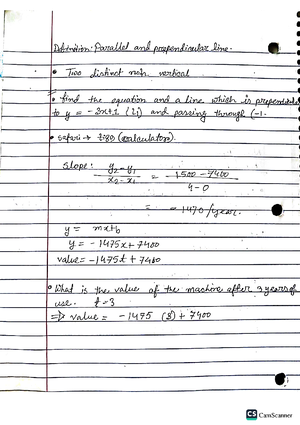 Definition: Parallel and perpendicular line.
• Two distinct non. vertical
• find the equation and a line which is prependicular
to y = -3x+1 (1i) and passing through (-1.
slope: y₂-y₁ / x₂-x₁ = 1500-7400 / 4-0
= -1470/year.
y = mx+b
y = -1475x + 7400
value = -1475t + 7400
• What is the value of the machine after 3 years of
use. t=3
⇒ value = -1475 (3) + 7400
CS CamScanner